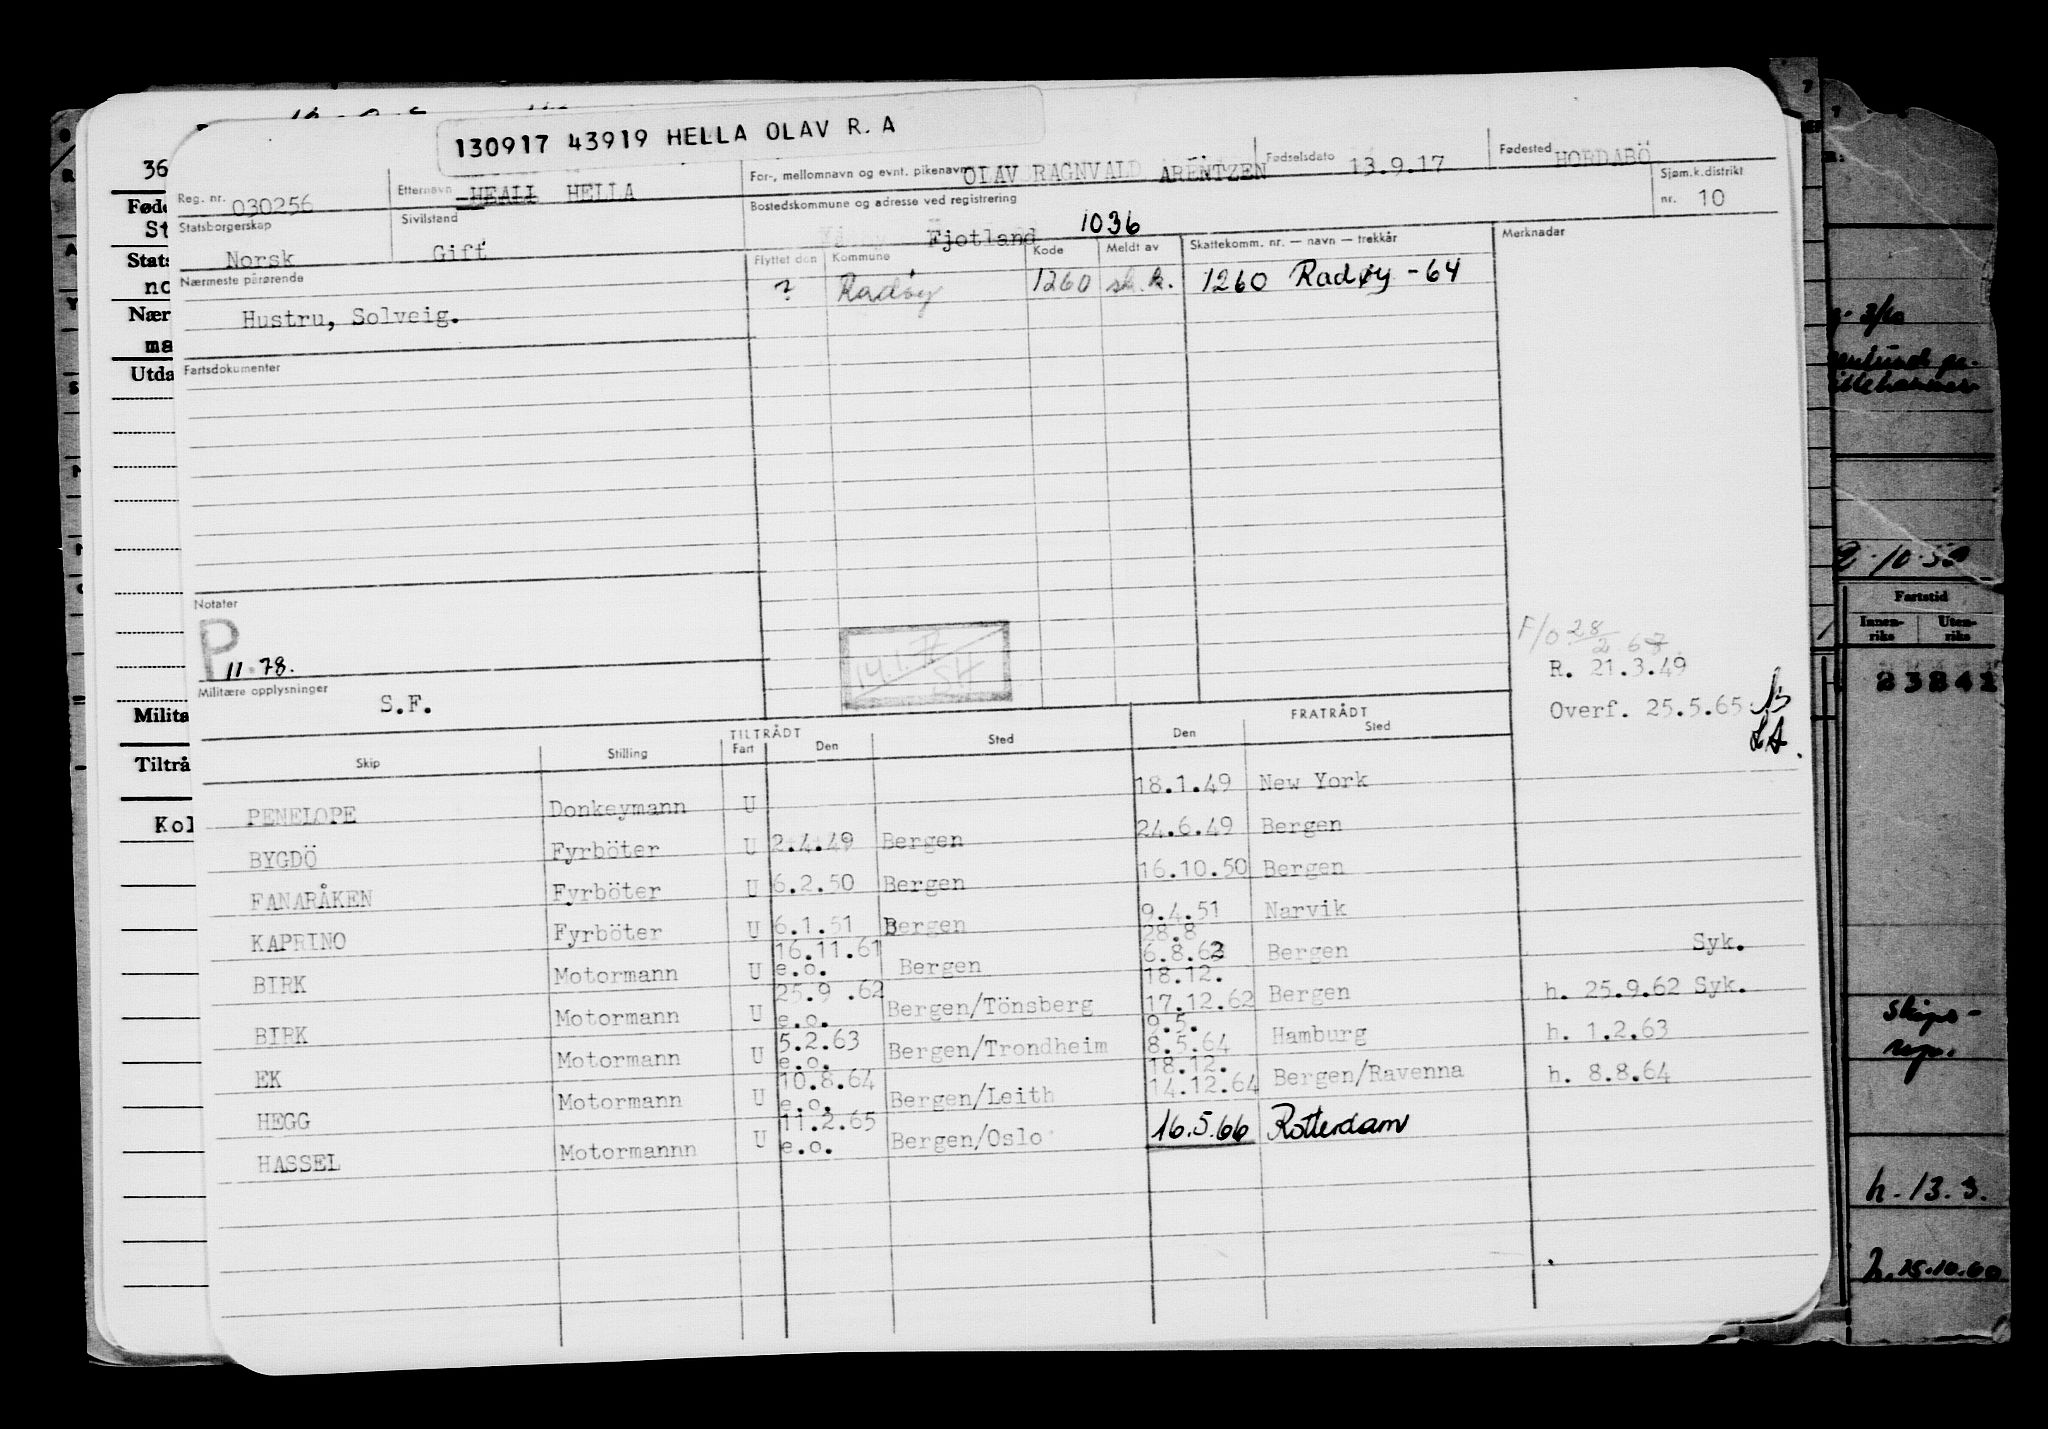 130917 43919 HELLA OLAV R. A
Reg. nr. 030256
Etternavn HEALL HELLA
For-, mellomnavn og evnt. pikenavn OLAV RAGNVALD ARENTZEN
Fødselsdato 13.9.17
Fødested HORDABÖ
Statsborgerskap Norsk
Sivilstand Gift
Bostedskommune og adresse ved registrering Fjotland 1036
Sjøm.k.distrikt nr. 10
Nærmeste pårørende
Hustru, Solveig.
Flyttet den Kommune Kode Meldt av Skattekomm. nr. — navn — trekkår Merknader
? Radøy 1260 sk.k. 1260 Radøy -64
Fartsdokumenter
Notater
P 11.78.
Militære opplysninger
S.F.
F/o 28/2 67
R. 21.3.49
Overf. 25.5.65
TILTRÅDT FRATRÅDT
Skip Stilling Fart Den Sted Den Sted
PENELOPE Donkeymann U 18.1.49 New York
BYGDÖ Fyrböter U 2.4.49 Bergen 24.6.49 Bergen
FANARÅKEN Fyrböter U 6.2.50 Bergen 16.10.50 Bergen
KAPRINO Fyrböter U 6.1.51 Bergen 9.4.51 Narvik
BIRK Motormann U 16.11.61 e.o. Bergen 28.8 6.8.62 Bergen Syk.
BIRK Motormann U 25.9 .62 e.o. Bergen/Tönsberg 18.12. 17.12.62 Bergen h. 25.9.62 Syk.
EK Motormann U 5.2.63 e.o. Bergen/Trondheim 9.5. 8.5.64 Hamburg h. 1.2.63
HEGG Motormann U 10.8.64 e.o. Bergen/Leith 18.12. 14.12.64 Bergen/Ravenna h. 8.8.64
HASSEL Motormannn U 11.2.65 e.o. Bergen/Oslo 16.5.66 Rotterdam
36
Føde
St
Stats
no
Nær
ma
Utda
Milita
Tiltrå
Kol
Fartstid
Innenriks Utenriks
23241
h. 13.3.
h. 15.10.60